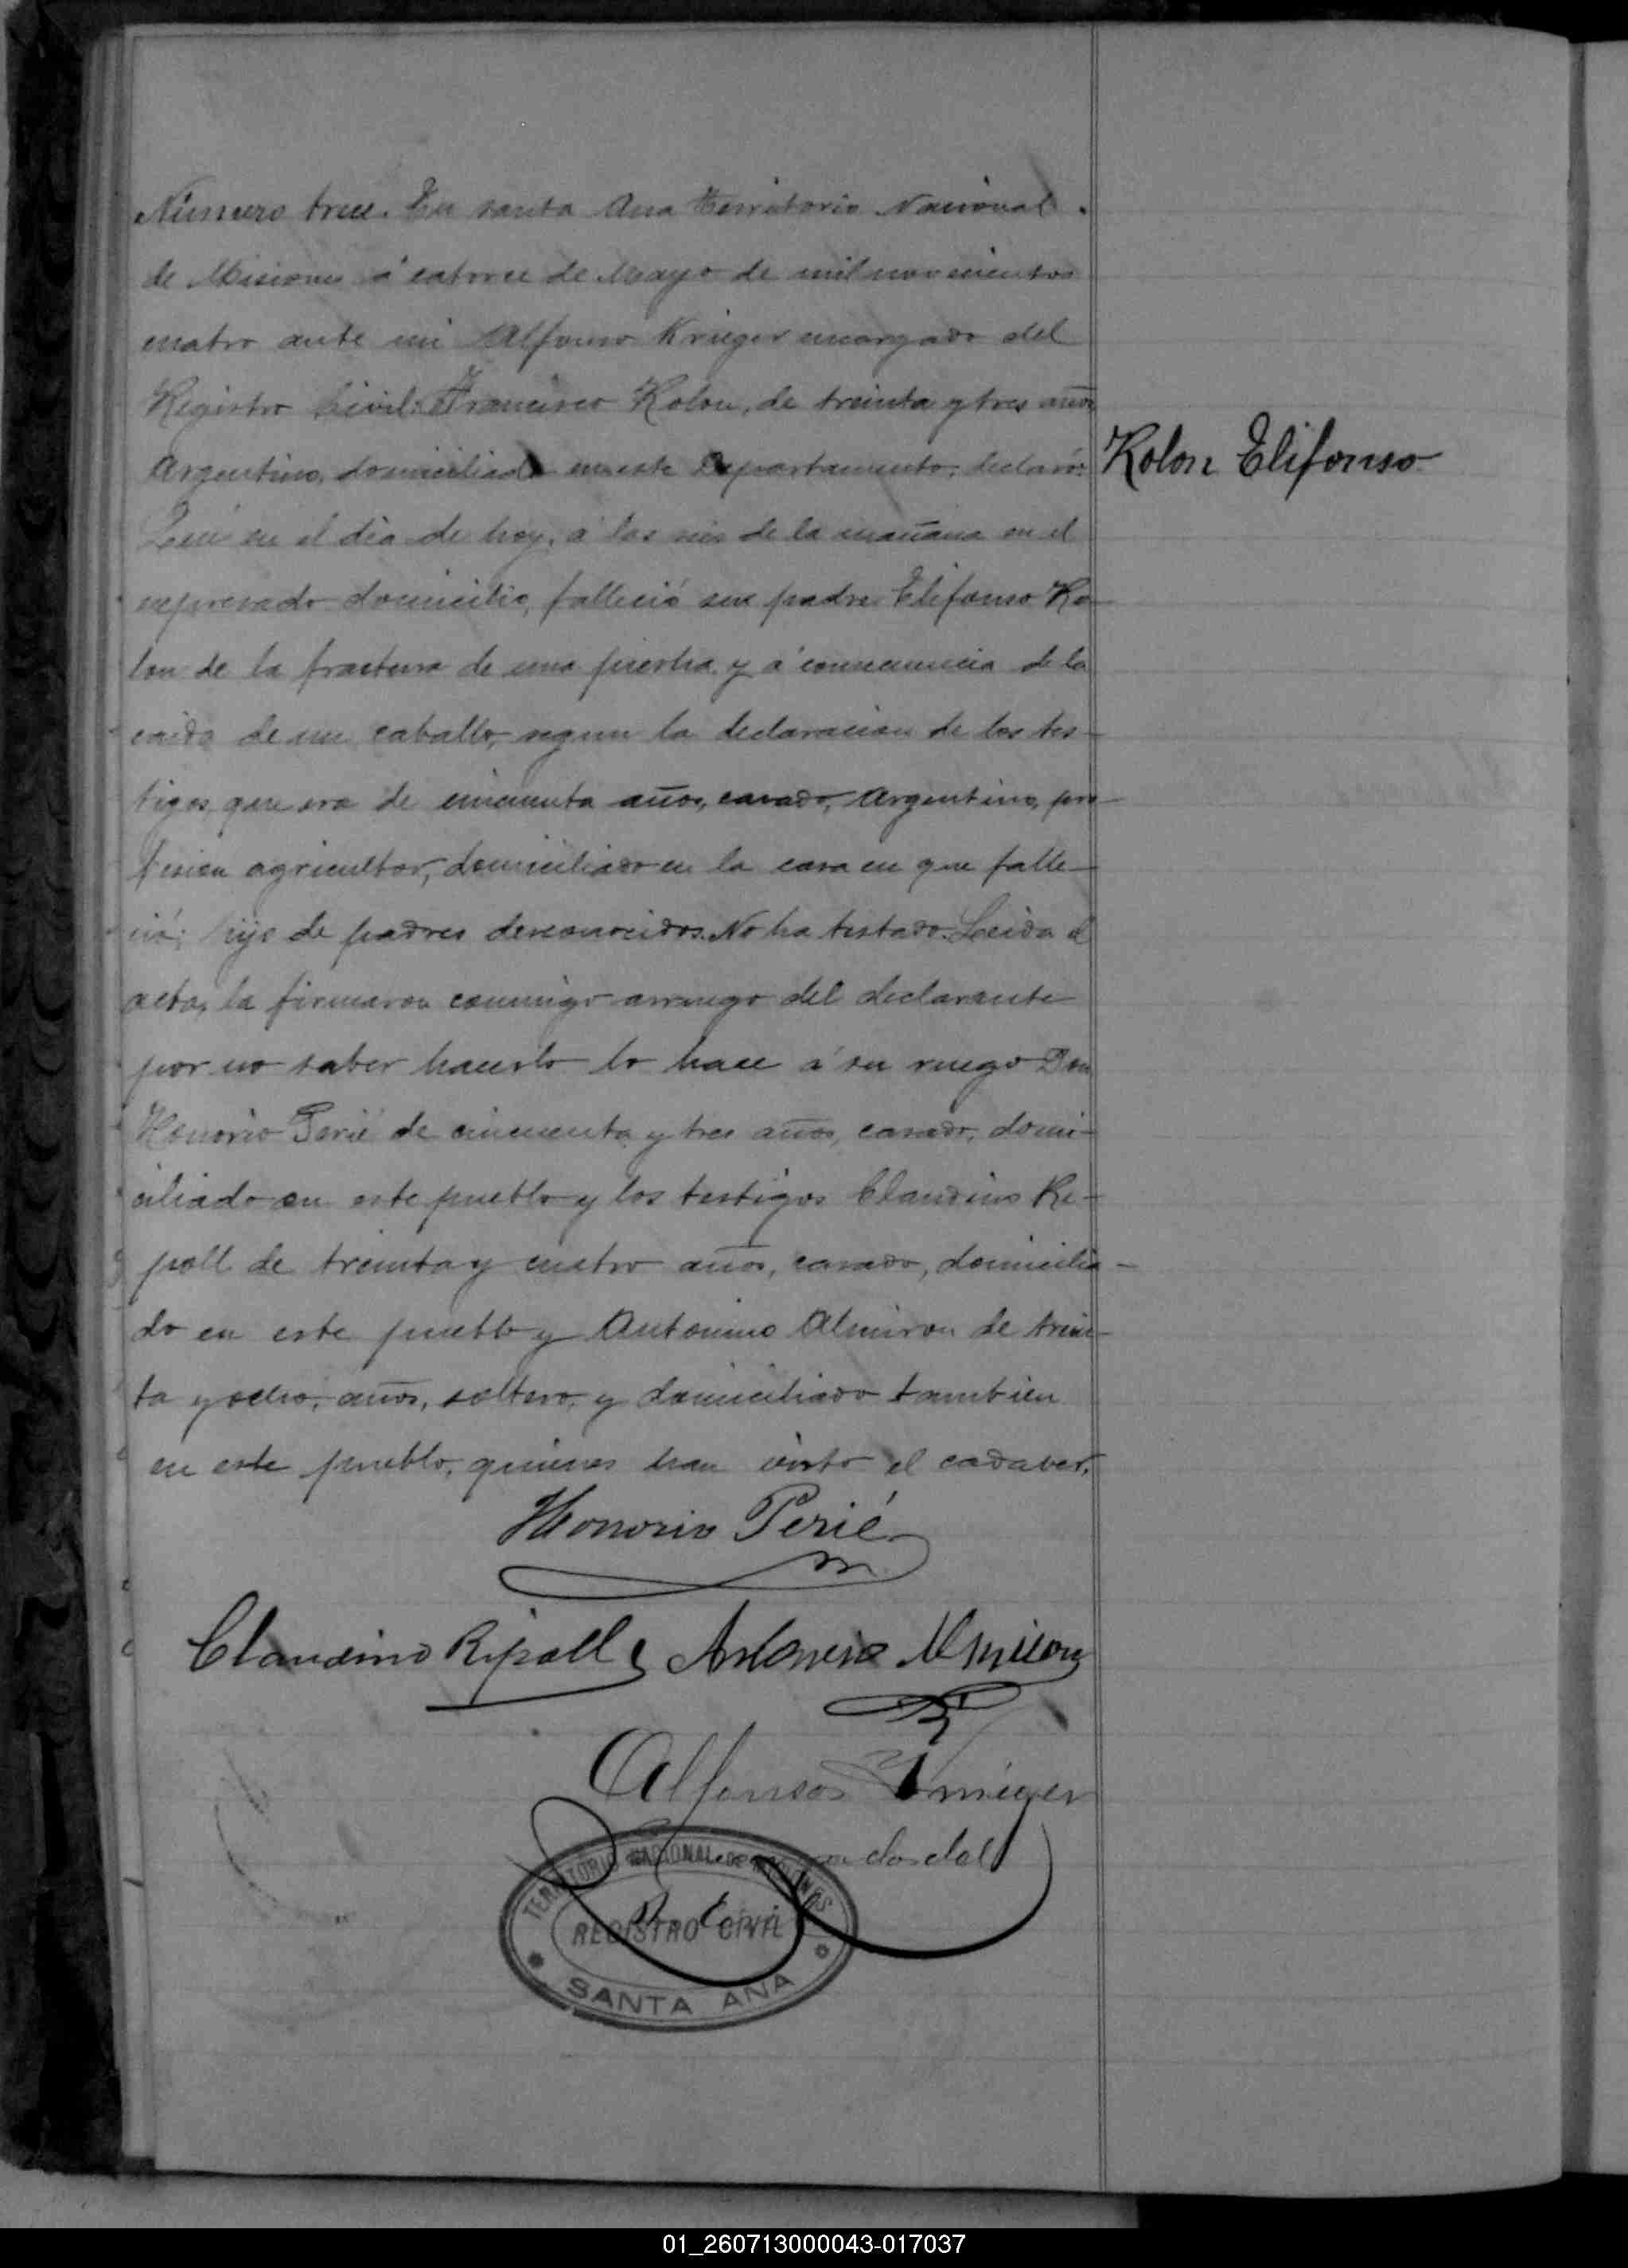 Número trece. En santa Ana Territorio Nacional
de Misiones á catorce de Mayo de mil novecientos
cuatro ante mi Alfonso Krieger encargado del
Registro Civil: Francisco Kolon, de treinta y tres años
Argentino, domiciliado en este Departamento, declaró:
Kolon Elifonso
Que en el dia de hoy, á las seis de la mañana en el
expresado domicilio, falleció su padre Elifonso Ko-
lon de la fractura de una pierna y á consecuencia de la
caida de un caballo, segun la declaracion de los tes-
tigos, que era de cincuenta años, casado, Argentino, pro-
fesion agricultor, domiciliado en la casa en que falle-
ció; hijo de padres desconocidos. No ha testado. Leida el
acta, la firmaron conmigo arruego del declarante
por no saber hacerlo lo hace á su ruego Don
Honorio Perié de cincuenta y tres años, casado, domi-
ciliado en este pueblo y los testigos Claudino Ri-
poll de treinta y cuatro años, casado, domicilia-
do en este pueblo y Antonino Almiron de trein-
ta y ocho, años, soltero, y domiciliado tambien
en este pueblo, quienes han visto el cadaver.
Honorio Perié
Claudino Ripoll Antonino Almiron
Alfonso Krieger
do del
R. Civil
TERRITORIO NACIONAL DE MISIONES
REGISTRO CIVIL
SANTA ANA
01_260713000043-017037